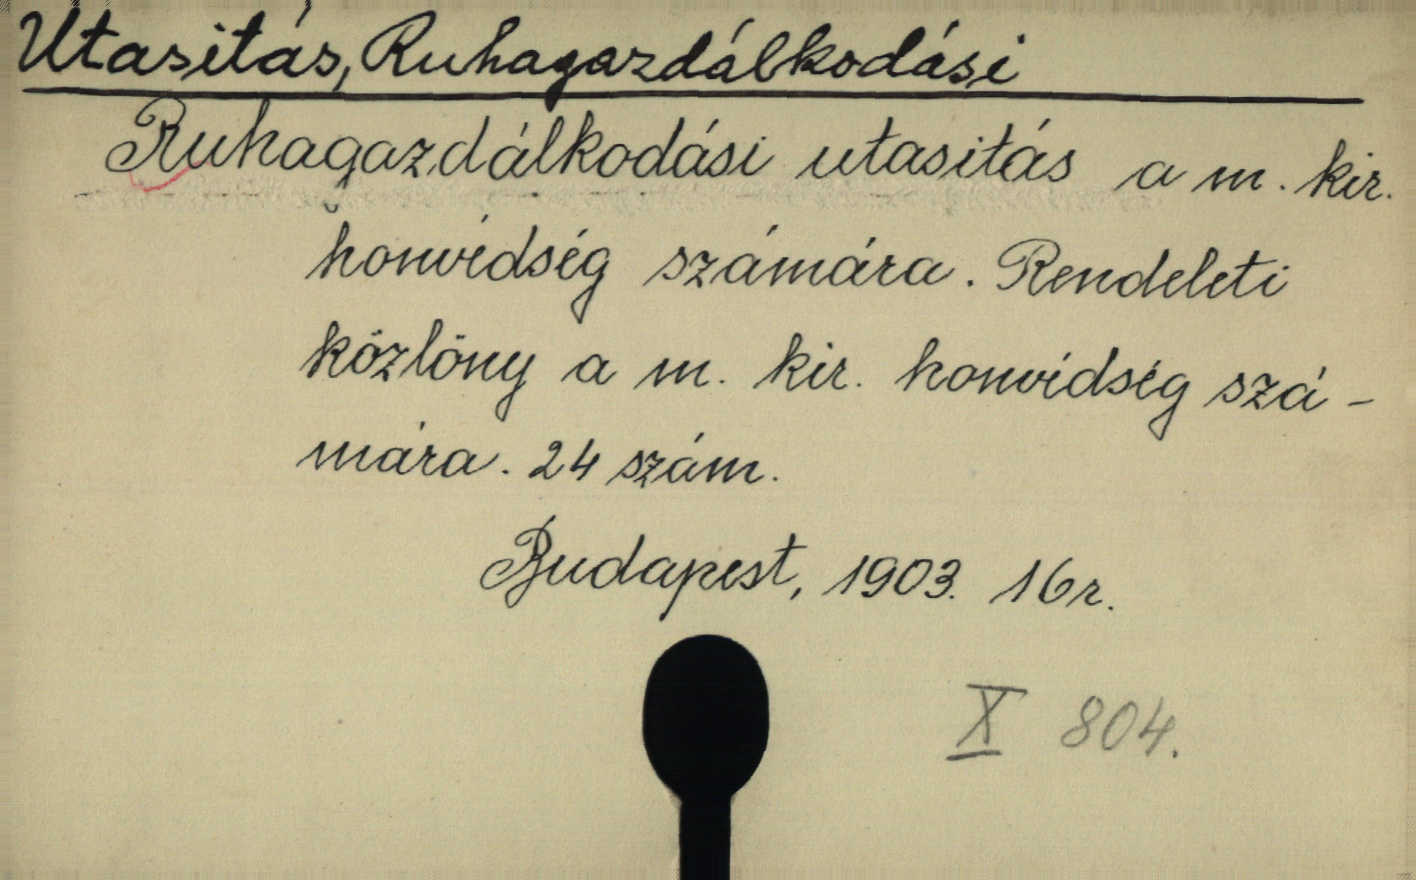 Utasitás, Ruhagazdálkodási
Ruhagazdálkodási utasitás a m. kir.
honvédség számára. Rendeleti
közlöny a m. kir. honvédség szá-
mára. 24 szám.
Budapest, 1903. 16 r.
X 804.